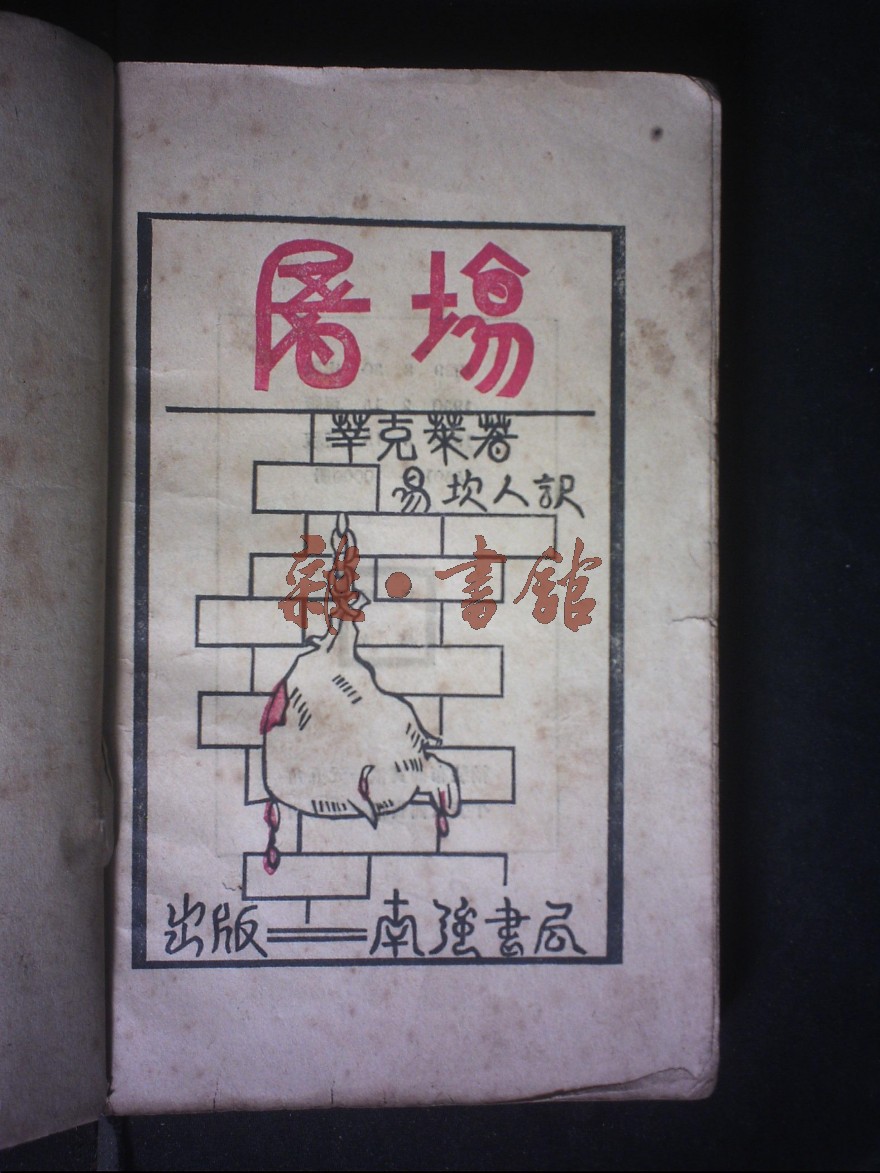 屠場
辛克萊著
易坎人訳
雜·書館
出版——南強書局